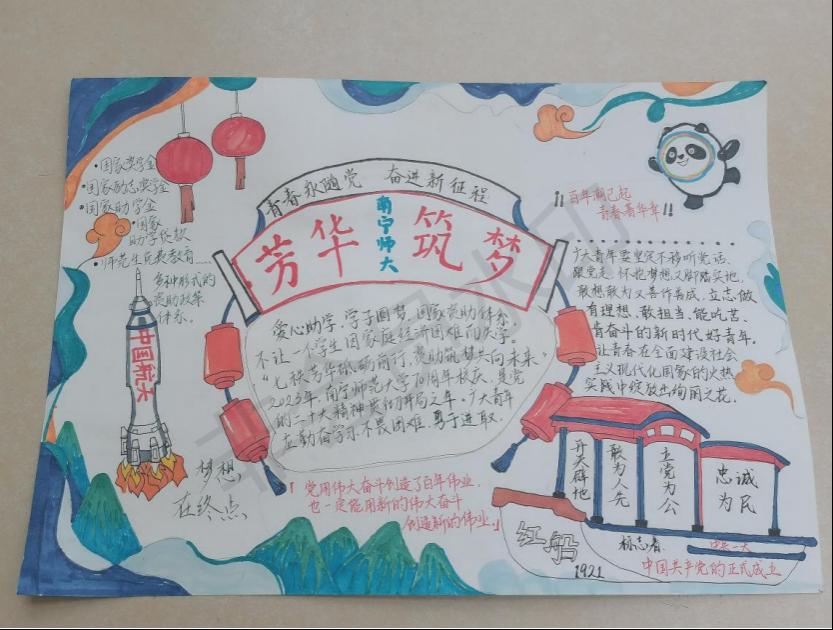 青春永随党 奋进新征程
芳华
南宁师大
筑梦
·国家奖学金
·国家励志奖学金
·国家助学金
·国家
助学贷款
·师范生免费教育……
多种形式的
资助政策
体系。
中国航天
梦想
在终点
爱心助学,学子圆梦,国家资助体系,
不让一个学生因家庭经济困难而失学。
“七秩芳华砥砺前行,资助筑梦共向未来”
2023年,南宁师范大学70周年校庆,是党
的二十大精神贯彻开局之年。广大青年
立勤奋学习,不畏困难,勇于进取。
「党用伟大奋斗创造了百年伟业,
也一定能用新的伟大奋斗
创造新的伟业。」
百年潮已起
青春著华章
广大青年要坚定不移听党话、
跟党走,怀抱梦想又脚踏实地,
敢想敢为又善作善成,立志做
有理想、敢担当、能吃苦、
肯奋斗的新时代好青年。
让青春在全面建设社会
主义现代化国家的火热
实践中绽放出绚丽之花。
开天辟地
敢为人先
立党为公
忠诚
为民
红船
1921
标志着
中共一大
中国共产党的正式成立